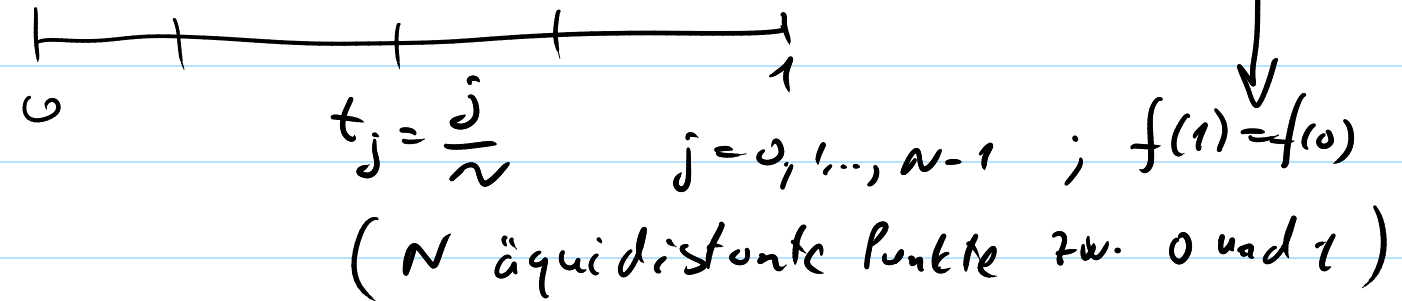 0 1
t_j = j/N j = 0, 1, ..., N-1 ; f(1) = f(0)
(N äquidistante Punkte zw. 0 und 1)